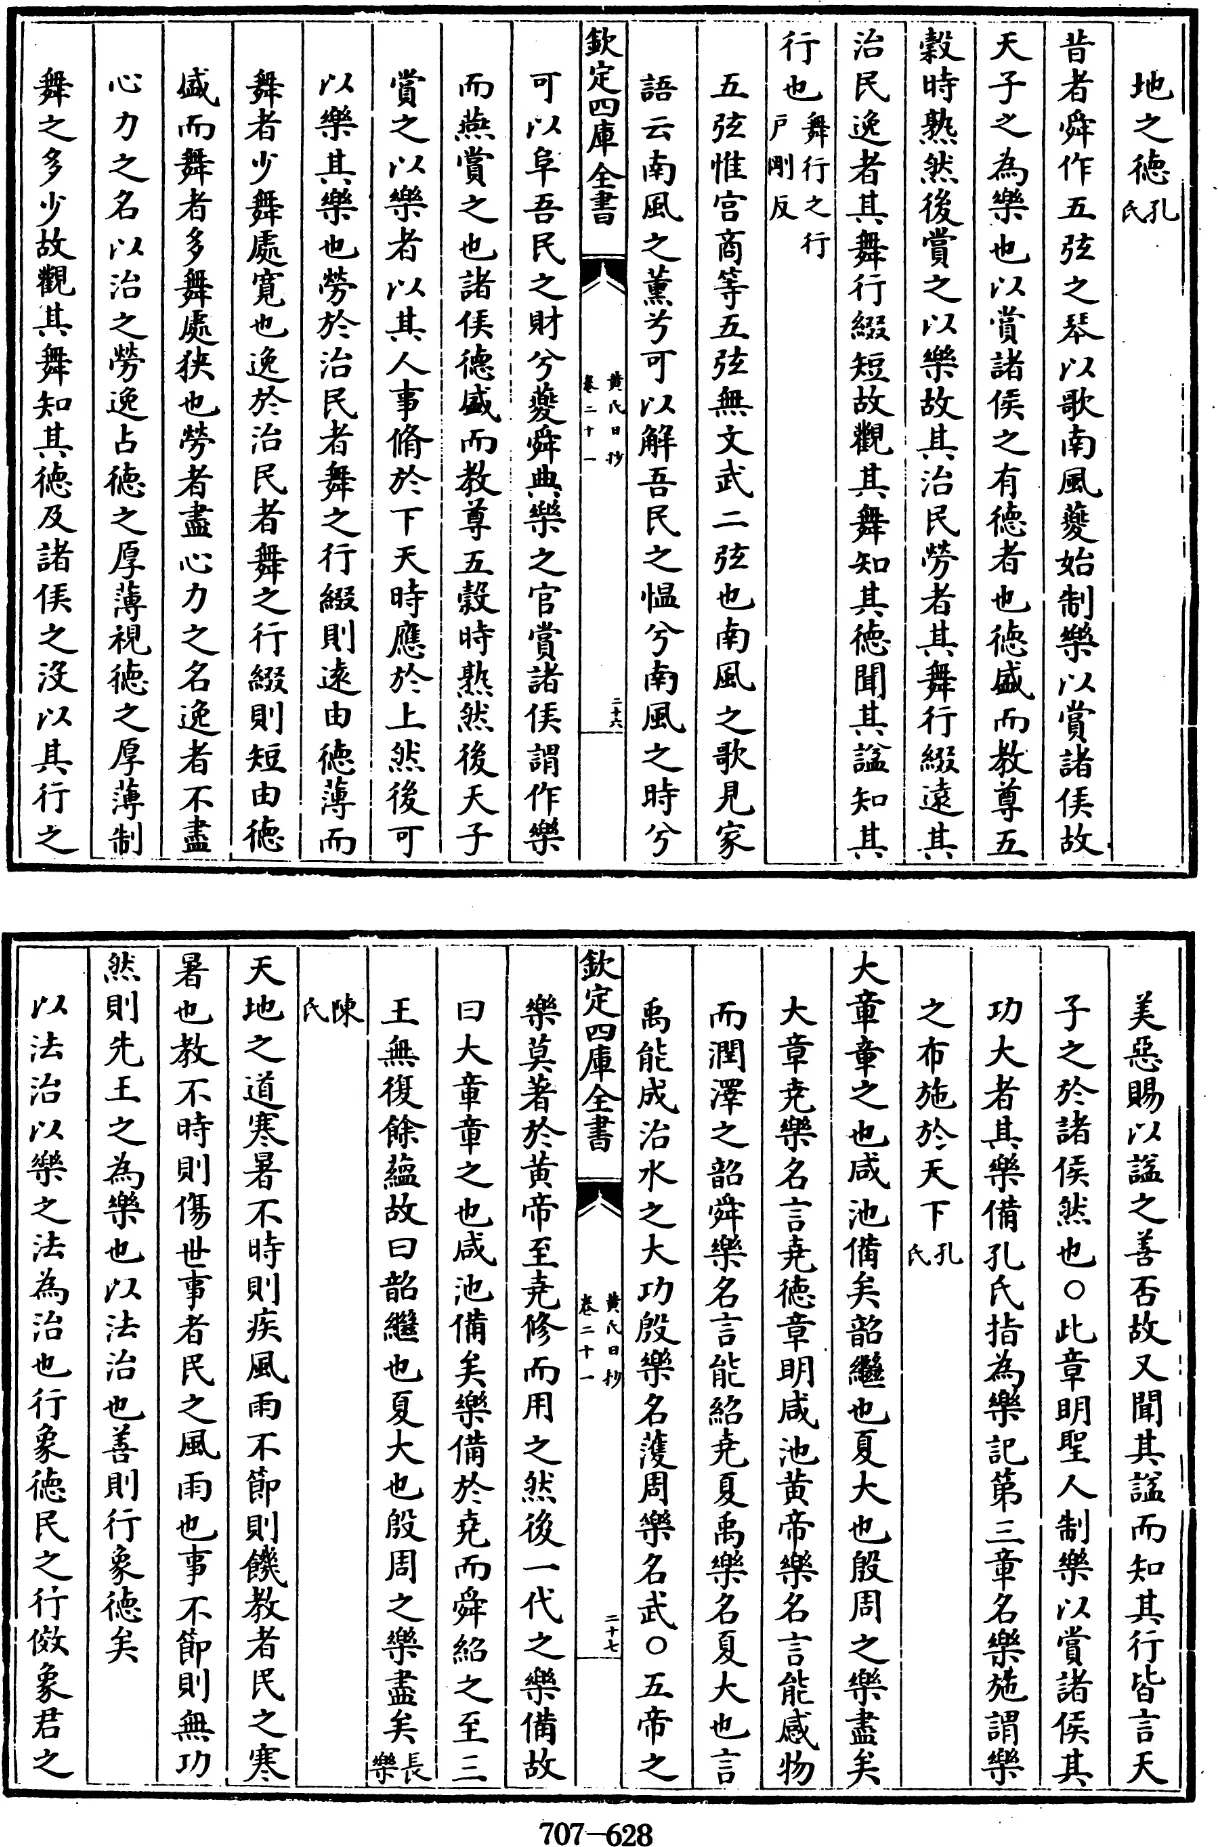 地之德孔氏
昔者舜作五弦之琴以歌南風夔始制樂以賞諸侯故
天子之為樂也以賞諸侯之有德者也德盛而教尊五
穀時熟然後賞之以樂故其治民勞者其舞行綴遠其
治民逸者其舞行綴短故觀其舞知其德聞其諡知其
行也舞行之行戸剛反
五弦惟宫商等五弦無文武二弦也南風之歌見家
語云南風之薰兮可以解吾民之愠兮南風之時兮
欽定四庫全書
黄氏日抄
卷二十一
二十六
可以阜吾民之財兮夔舜典樂之官賞諸侯謂作樂
而燕賞之也諸侯德盛而教尊五穀時熟然後天子
賞之以樂者以其人事脩於下天時應於上然後可
以樂其樂也勞於治民者舞之行綴則逺由德薄而
舞者少舞處寛也逸於治民者舞之行綴則短由德
盛而舞者多舞處狹也勞者盡心力之名逸者不盡
心力之名以治之勞逸占德之厚薄視德之厚薄制
舞之多少故觀其舞知其德及諸侯之沒以其行之
美惡賜以諡之善否故又聞其諡而知其行皆言天
子之於諸侯然也○此章明聖人制樂以賞諸侯其
功大者其樂備孔氏指為樂記第三章名樂施謂樂
之布施於天下孔氏
大章章之也咸池備矣韶繼也夏大也殷周之樂盡矣
大章堯樂名言堯德章明咸池黄帝樂名言能感物
而潤澤之韶舜樂名言能紹堯夏禹樂名夏大也言
禹能成治水之大功殷樂名濩周樂名武○五帝之
欽定四庫全書
黄氏日抄
卷二十一
二十七
樂莫著於黄帝至堯修而用之然後一代之樂備故
曰大章章之也咸池備矣樂備於堯而舜紹之至三
王無復餘藴故曰韶繼也夏大也殷周之樂盡矣長樂
陳氏
天地之道寒暑不時則疾風雨不節則饑教者民之寒
暑也教不時則傷世事者民之風雨也事不節則無功
然則先王之為樂也以法治也善則行象德矣
以法治以樂之法為治也行象德民之行倣象君之
707—628